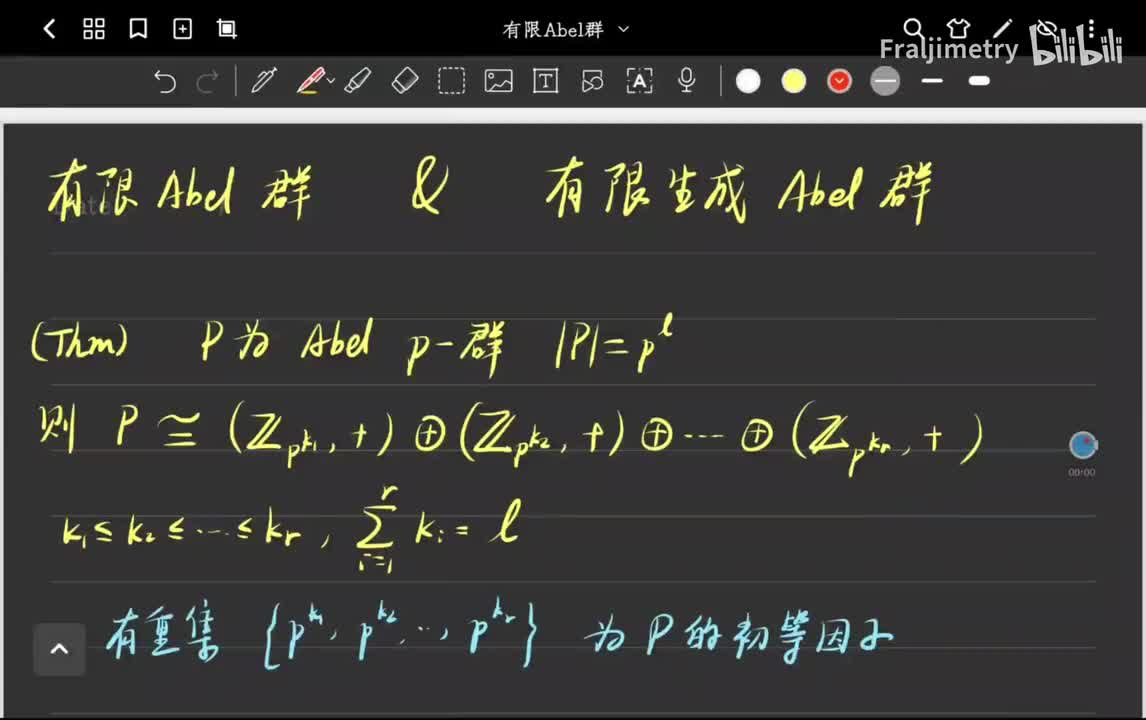 有限Abel群
Fraljimetry bilibili
有限 Abel 群 & 有限生成 Abel 群
(Thm) P为 Abel p-群 |P|=p^l
则 P ≅ (ℤ_{p^{k_1}}, +) ⊕ (ℤ_{p^{k_2}}, +) ⊕ ... ⊕ (ℤ_{p^{k_r}}, +)
k_1 ≤ k_2 ≤ ... ≤ k_r , ∑_{i=1}^{r} k_i = l
00:00
有重集 {p^{k_1}, p^{k_2}, ..., p^{k_r}} 为 P 的初等因子